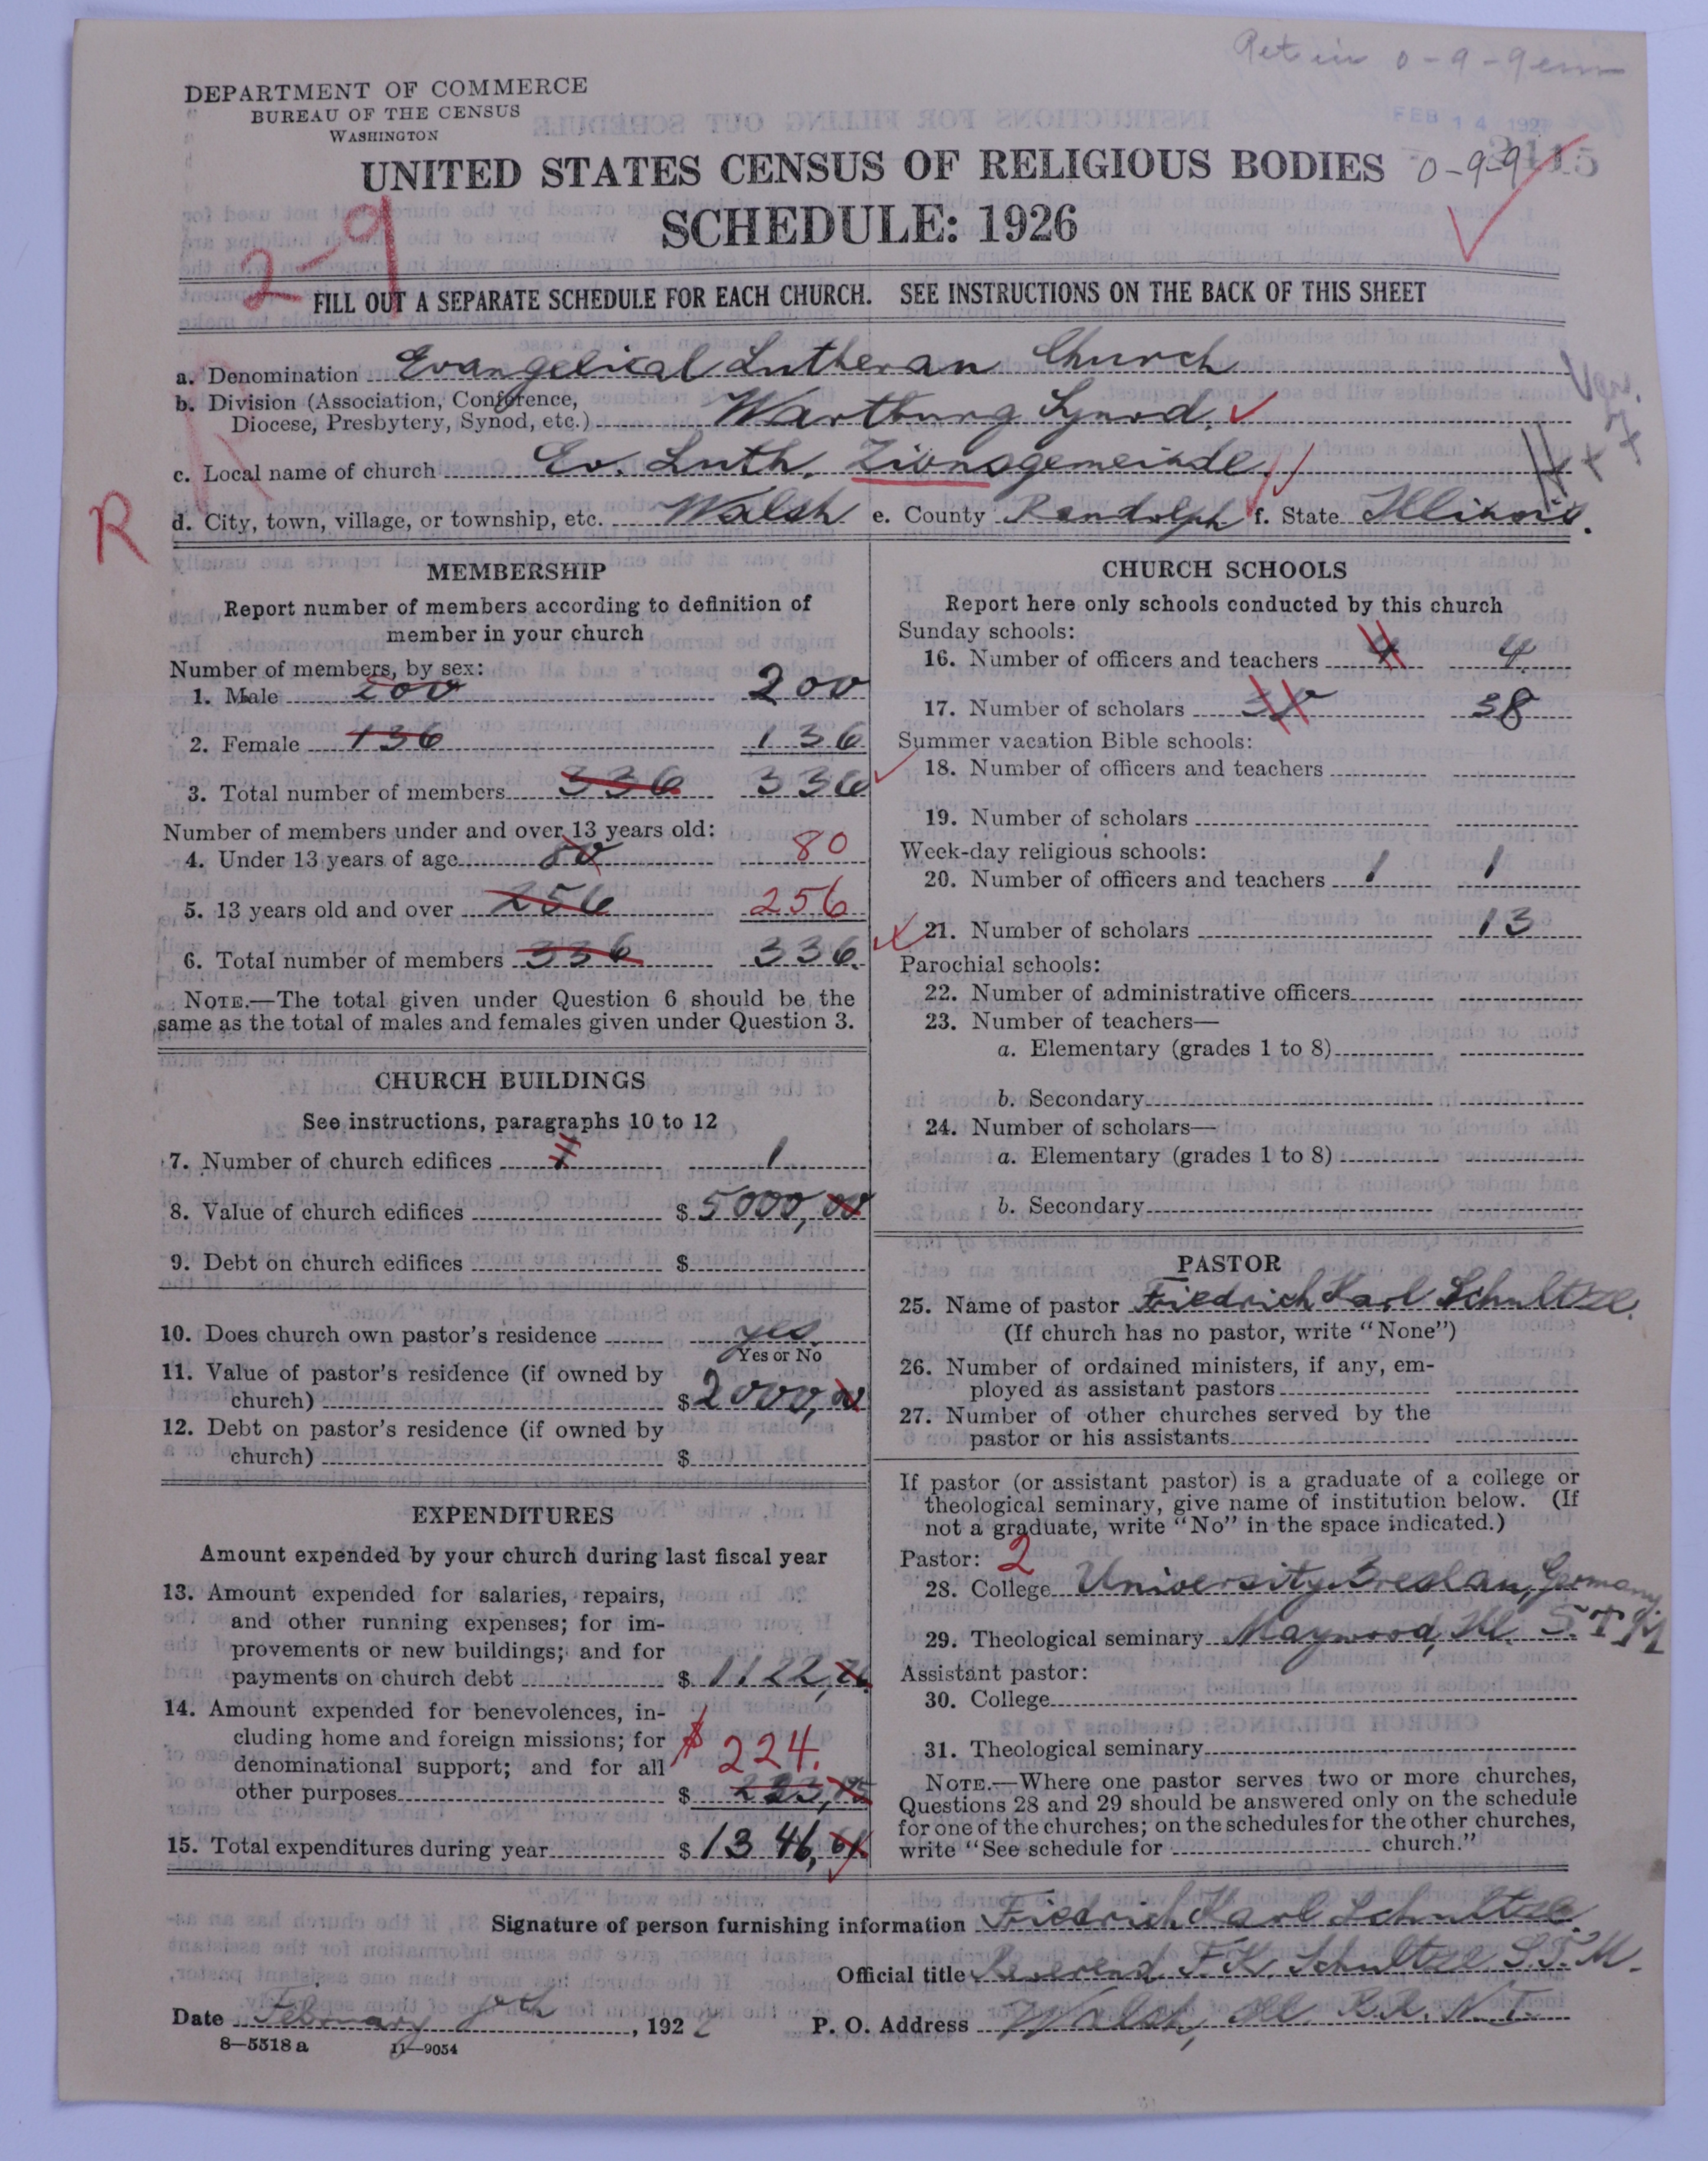 Ret in 0-9-9
DEPARTMENT OF COMMERCE
BUREAU OF THE CENSUS
WASHINGTON
FEB 14 192
UNITED STATES CENSUS OF RELIGIOUS BODIES 0-9-9
SCHEDULE: 1926
2-9
FILL OUT A SEPARATE SCHEDULE FOR EACH CHURCH. SEE INSTRUCTIONS ON THE BACK OF THIS SHEET
a. Denomination Evangelical Lutheran Church
b. Division (Association, Conference,
Diocese, Presbytery, Synod, etc.) Wartburg Synod.
c. Local name of church Ev. Luth. Zionsgemeinde
R
d. City, town, village, or township, etc. Walsh e. County Randolph f. State Illinois.
MEMBERSHIP
Report number of members according to definition of
member in your church
Number of members, by sex:
1. Male 200 200
2. Female 136 136
3. Total number of members 336 336
Number of members under and over 13 years old:
4. Under 13 years of age 80 80
5. 13 years old and over 256 256
6. Total number of members 336 336.
NOTE.—The total given under Question 6 should be the
same as the total of males and females given under Question 3.
CHURCH BUILDINGS
See instructions, paragraphs 10 to 12
7. Number of church edifices 1 1
8. Value of church edifices $ 5000,00
9. Debt on church edifices $
10. Does church own pastor's residence yes
Yes or No
11. Value of pastor's residence (if owned by
church) $ 2000,00
12. Debt on pastor's residence (if owned by
church) $
EXPENDITURES
Amount expended by your church during last fiscal year
13. Amount expended for salaries, repairs,
and other running expenses; for im-
provements or new buildings; and for
payments on church debt $ 1122,
14. Amount expended for benevolences, in-
cluding home and foreign missions; for
denominational support; and for all $ 224.
other purposes $ 223,
15. Total expenditures during year $ 1346,
CHURCH SCHOOLS
Report here only schools conducted by this church
Sunday schools:
16. Number of officers and teachers 4 4
17. Number of scholars 38 38
Summer vacation Bible schools:
18. Number of officers and teachers
19. Number of scholars
Week-day religious schools:
20. Number of officers and teachers 1 1
21. Number of scholars 13
Parochial schools:
22. Number of administrative officers
23. Number of teachers—
a. Elementary (grades 1 to 8)
b. Secondary
24. Number of scholars—
a. Elementary (grades 1 to 8)
b. Secondary
PASTOR
25. Name of pastor Friedrich Karl Schultze.
(If church has no pastor, write "None")
26. Number of ordained ministers, if any, em-
ployed as assistant pastors
27. Number of other churches served by the
pastor or his assistants
If pastor (or assistant pastor) is a graduate of a college or
theological seminary, give name of institution below. (If
not a graduate, write "No" in the space indicated.)
Pastor: 2
28. College University Breslau, Germany.
29. Theological seminary Maywood, Ill. S.T.M
Assistant pastor:
30. College
31. Theological seminary
NOTE.—Where one pastor serves two or more churches,
Questions 28 and 29 should be answered only on the schedule
for one of the churches; on the schedules for the other churches,
write "See schedule for church."
Signature of person furnishing information Friedrich Karl Schultze.
Official title Reverend F. K. Schultze S.T.M.
Date February 8th, 1927 P. O. Address Walsh, Ill. R.R. N. I.
8—5518 a 11—9054